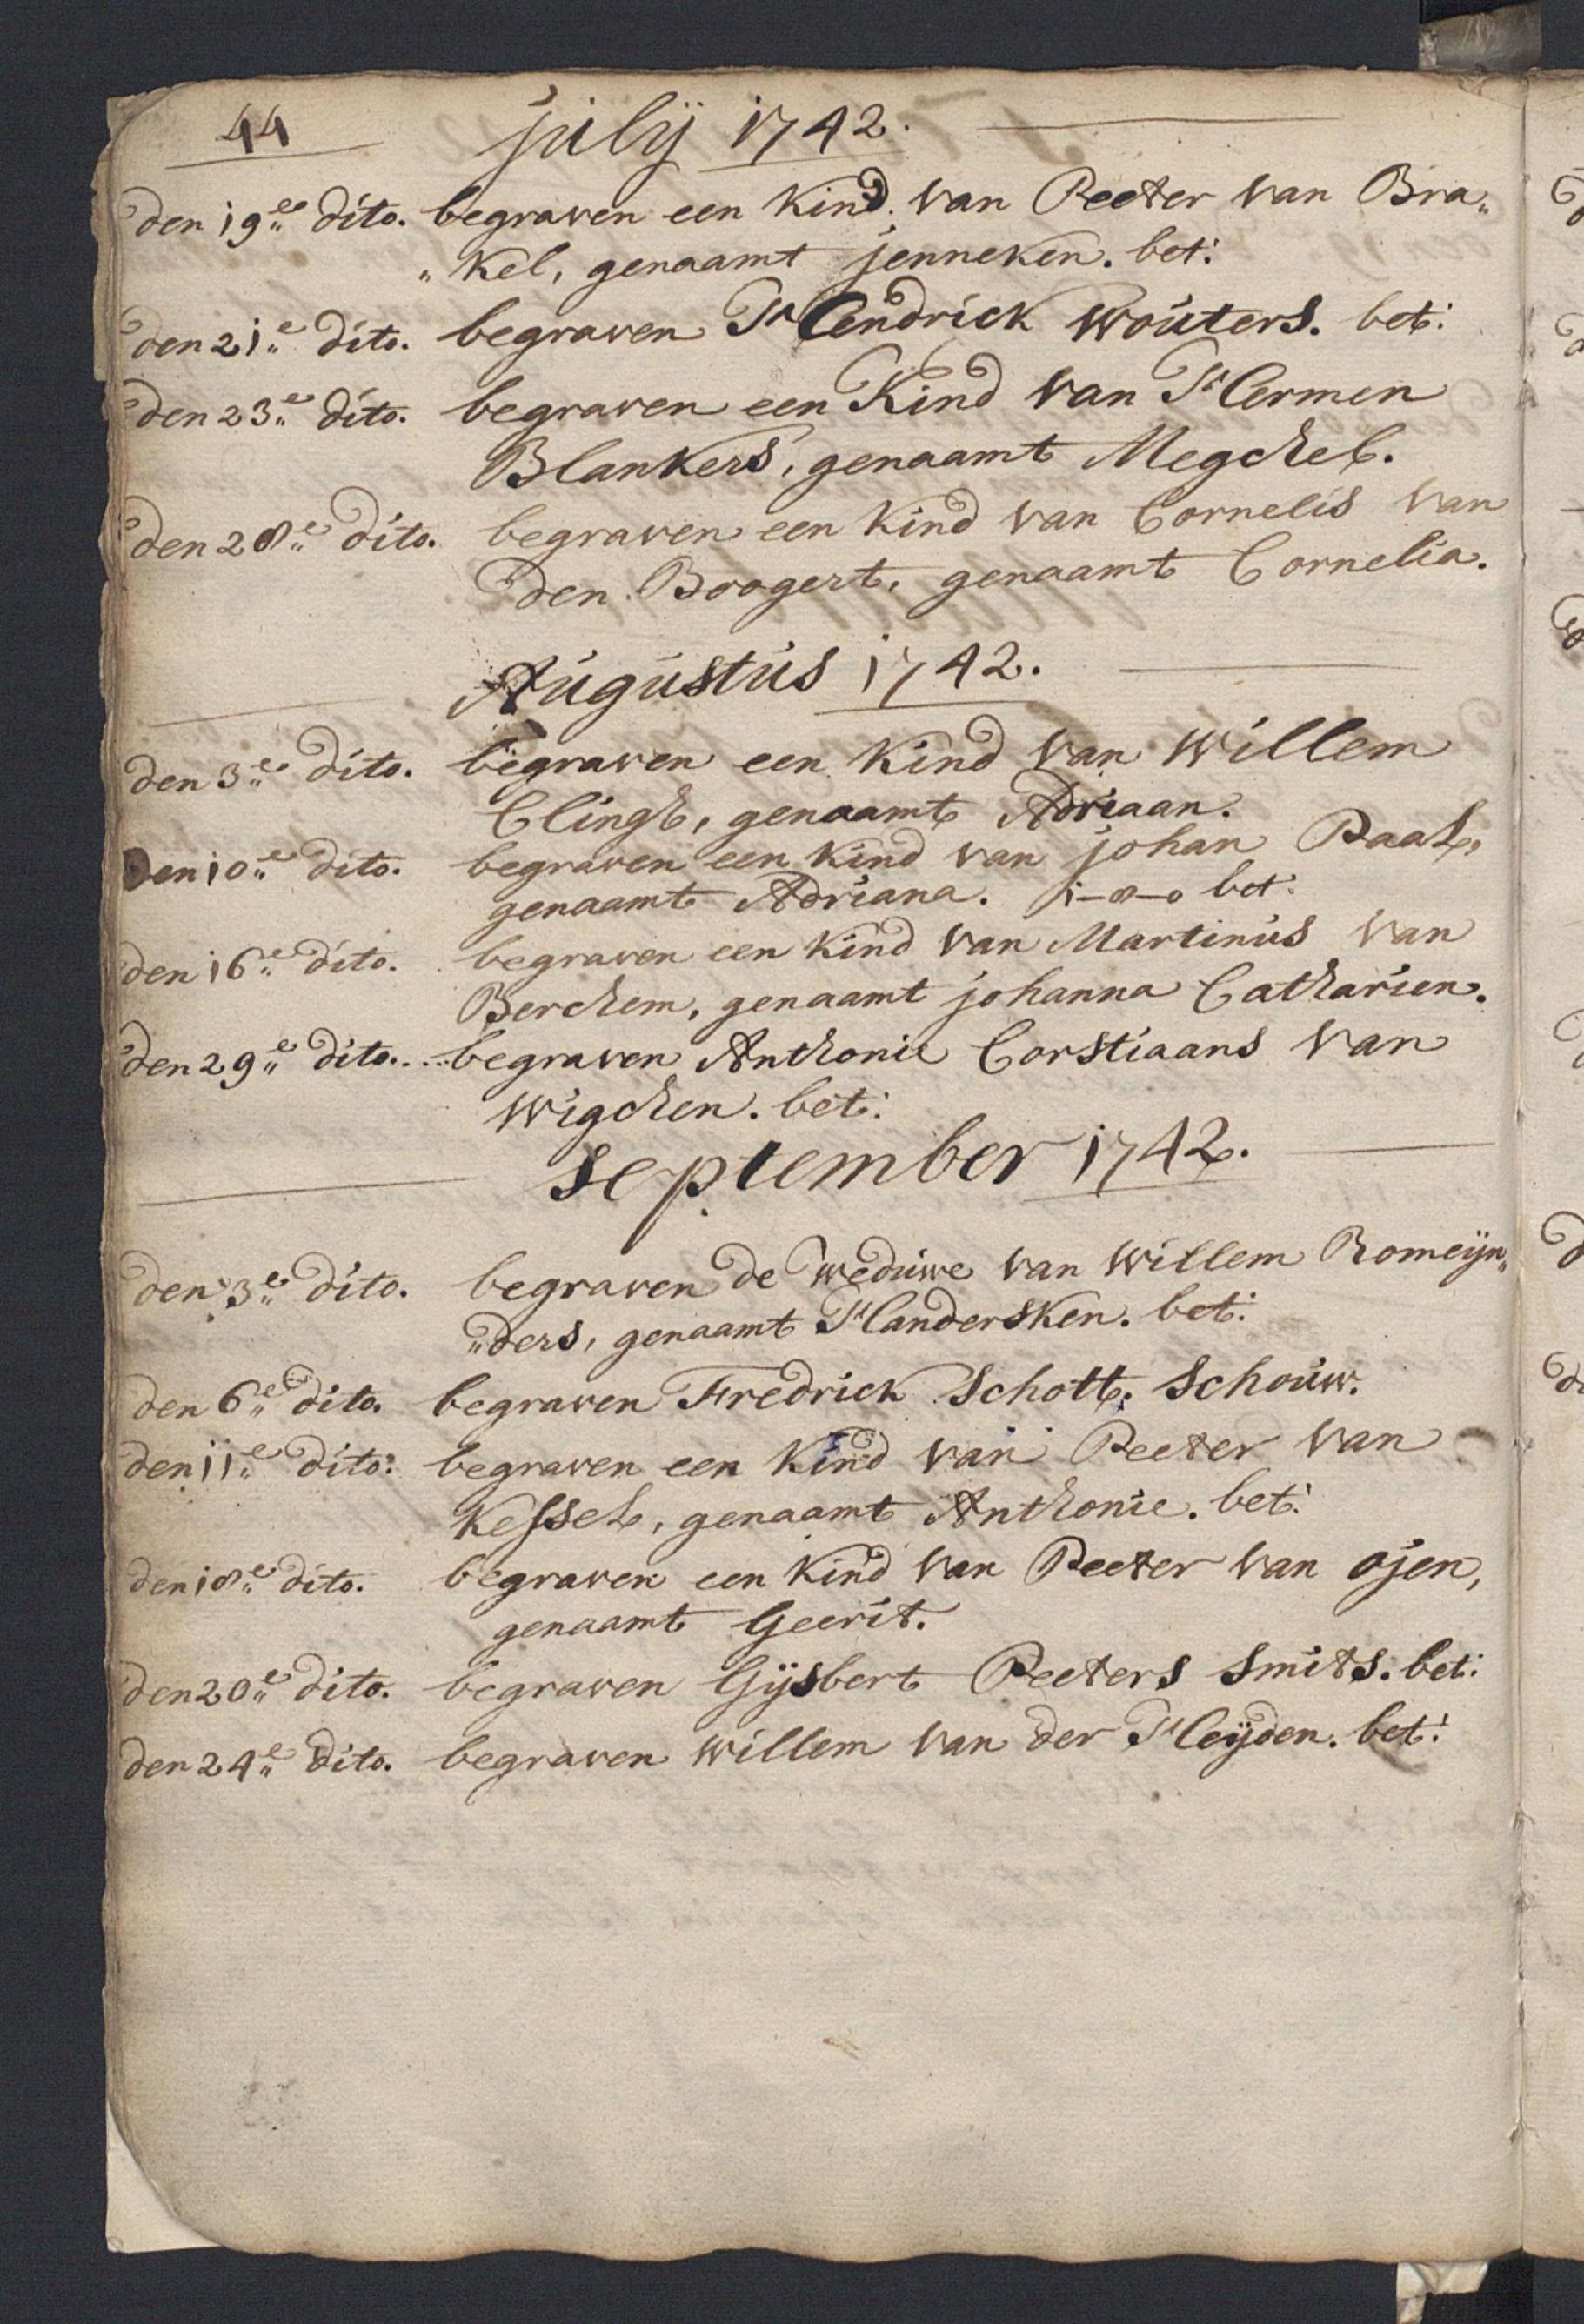 44 julij 1742.
den 19.e dito. begraven een kind van Peeter van Bra„
„kel, genaamt jenneken. bet:
den 21.e dito. begraven Hendrick Wouters. bet:
den 23.e dito. begraven een Kind van Hermen
Blankers, genaamt Megchel.
den 28.e dito. begraven een kind van Cornelis van
den Boogert, genaamt Cornelia.
Augustus 1742.
den 3.e dito. begraven een kind van Willem
Clingh, genaamt Adriaan.
den 10.e dito. begraven een kind van johan Paal,
genaamt Adriana. 1-8-0 bet:
den 16.e dito. begraven een kind van Martinus van
Berchem, genaamt johanna Catharien.
den 29.e dito... begraven Anthonie Corstiaans van
Wigchen. bet:
September 1742.
den 3.e dito. begraven de weduwe van Willem Romeijn„
„ders, genaamt Handersken. bet:
den 6.e dito. begraven Fredrick Schott. Schouw.
den 11.e dito. begraven een kind van Peeter van
Kessel, genaamt Anthonie. bet:
den 18.e dito. begraven een kind van Peeter van ojen,
genaamt Geerit.
den 20.e dito. begraven Gijsbert Peeters Smits. bet:
den 24.e dito. begraven Willem van der Heijden. bet: